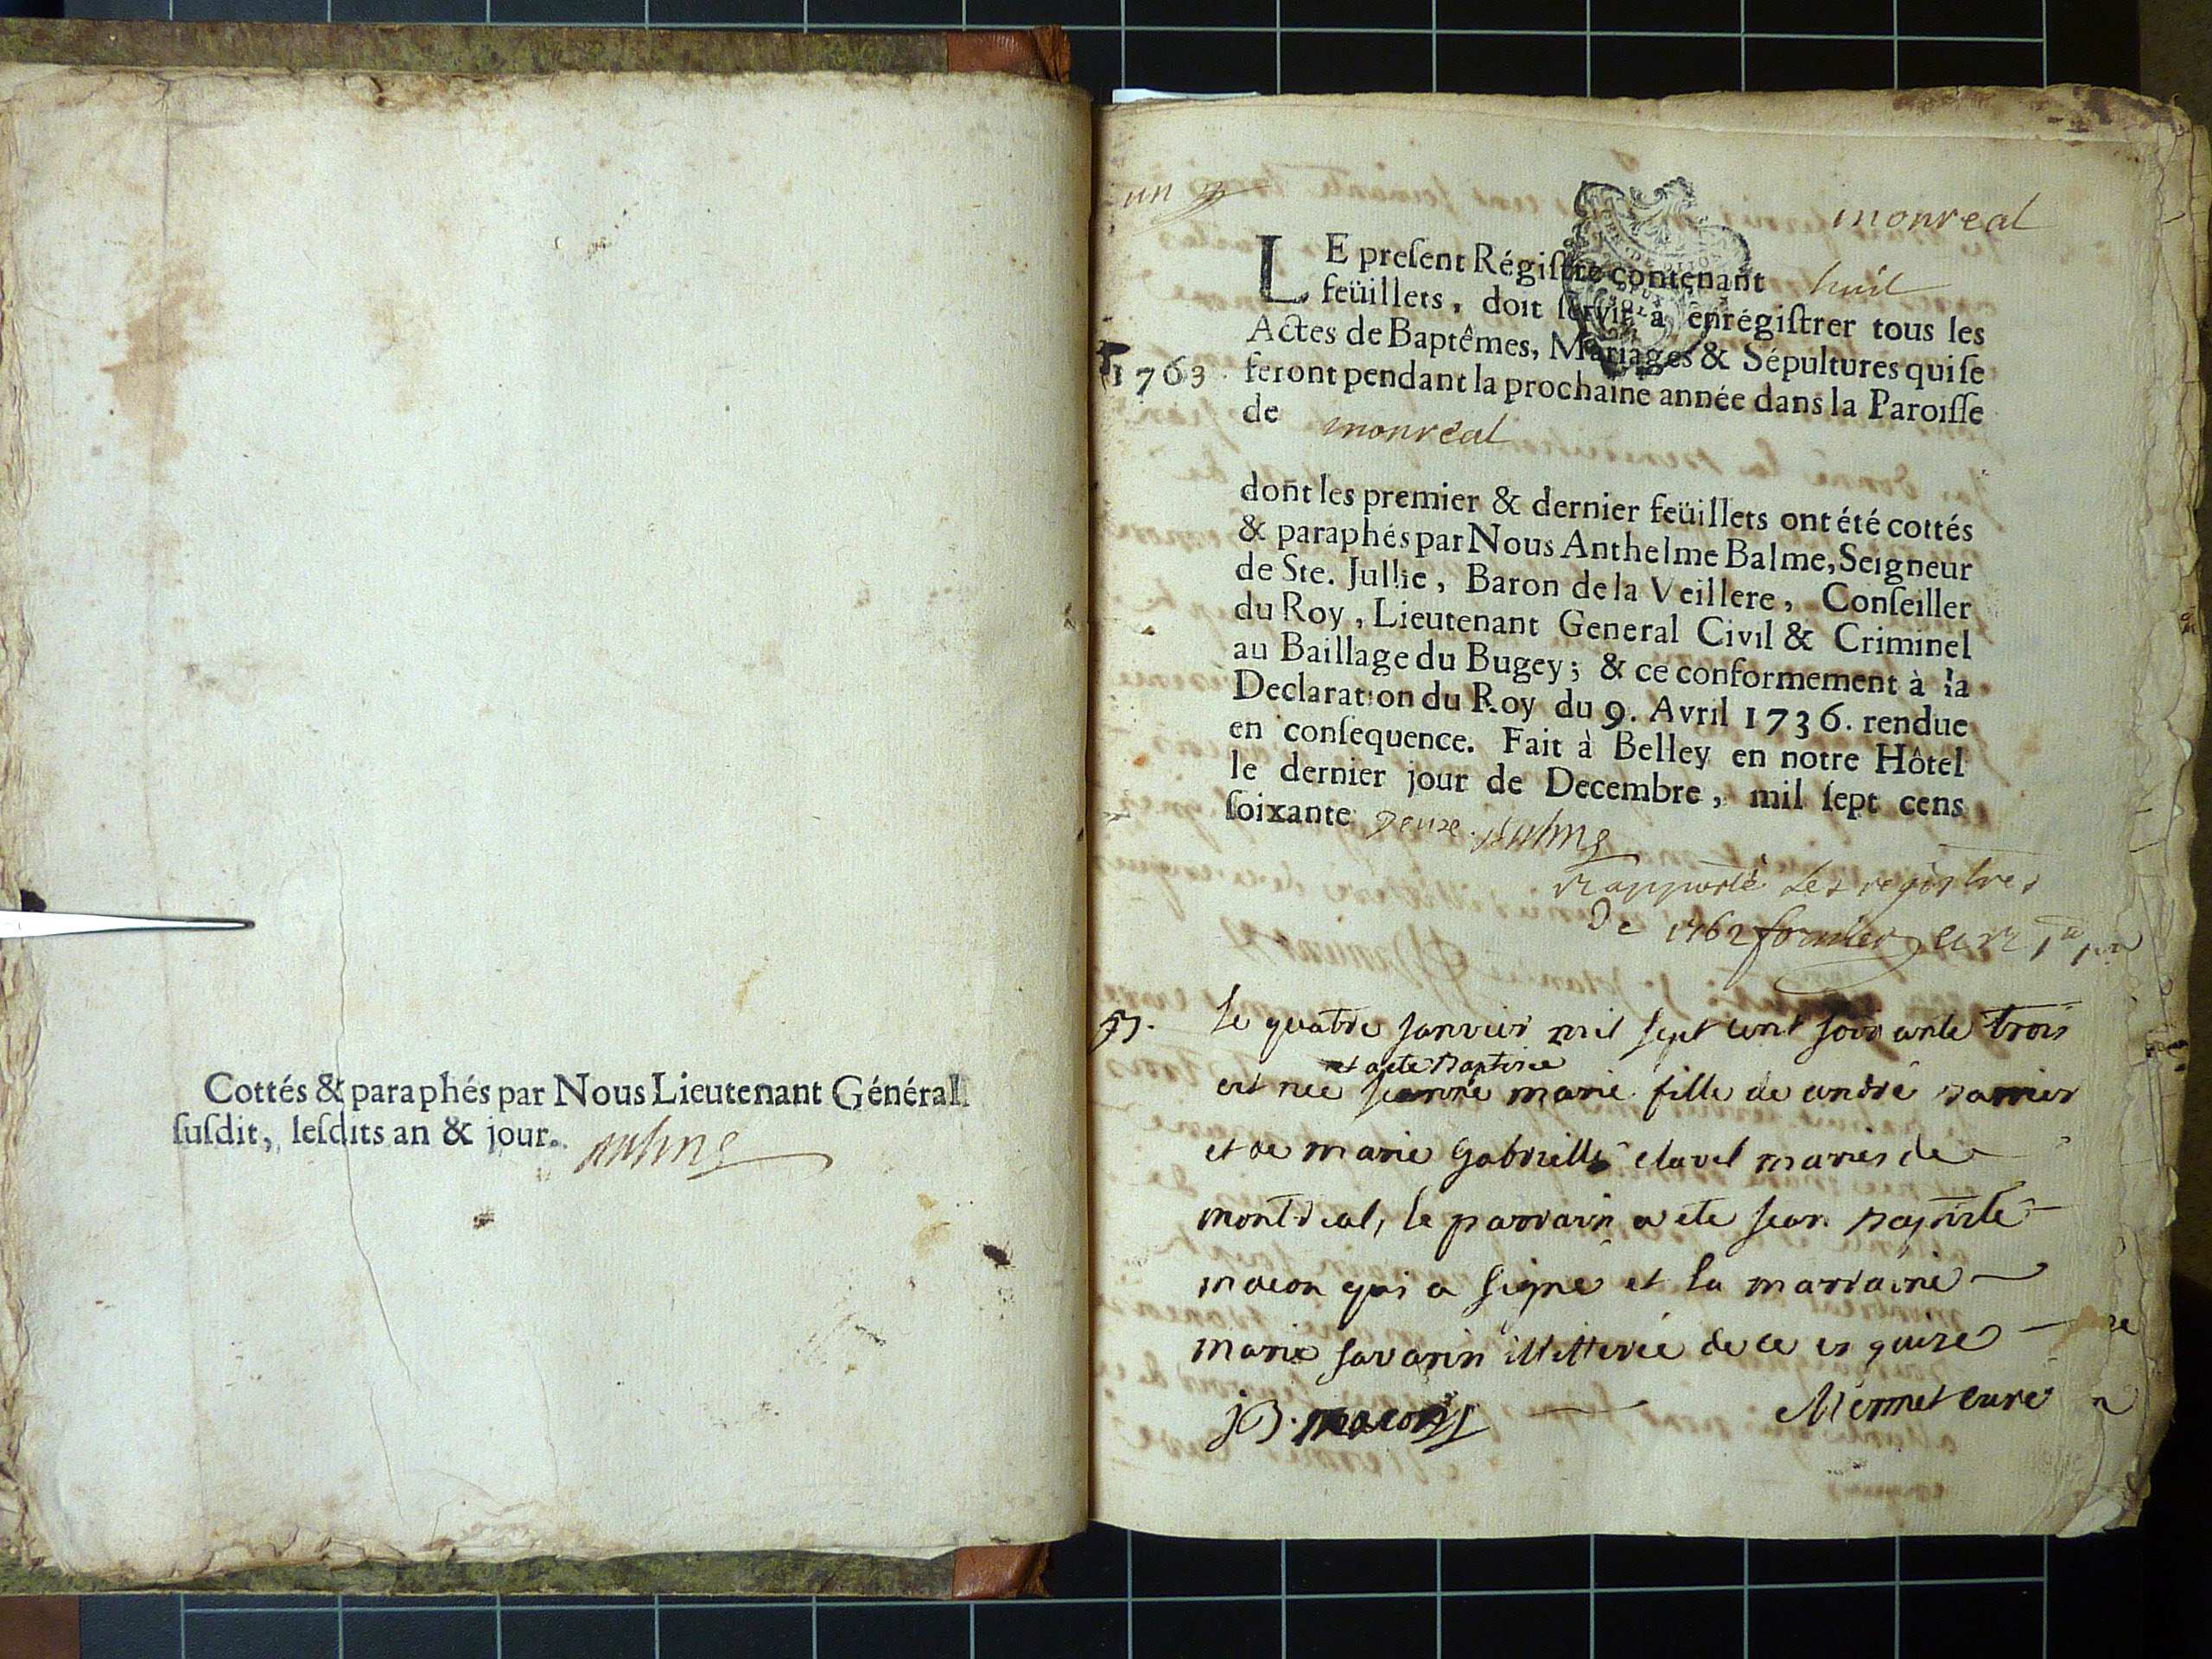 Cottés & paraphés par Nous Lieutenant Général
ſuſdit, leſdits an & jour. Balme
un
monreal
LE preſent Régiſtre contenant huit
feüillets, doit ſervir à enrégiſtrer tous les
Actes de Baptêmes, Mariages & Sépultures qui ſe
1763
feront pendant la prochaine année dans la Paroiſſe
de monreal
dont les premier & dernier feüillets ont été cottés
& paraphés par Nous Anthelme Balme, Seigneur
de Ste. Jullie, Baron de la Veillere, Conſeiller
du Roy, Lieutenant General Civil & Criminel
au Baillage du Bugey; & ce conformement à la
Declaration du Roy du 9. Avril 1736. rendue
en conſequence. Fait à Belley en notre Hôtel
le dernier jour de Decembre, mil ſept cens
ſoixante Deuze. Balme
rapporté Les registres
De 1762
B. Le quatre janvier mil sept cent soixante trois
et a ete Baptisée
est née jeanne marie fille de andré
et de marie Gabrielle clavel mariés de
montreal, le parrain a ete jean Baptiste
macon qui a signé et la marraine
marie savarin illitterée de ce enquise
JB. macon Mermet curé